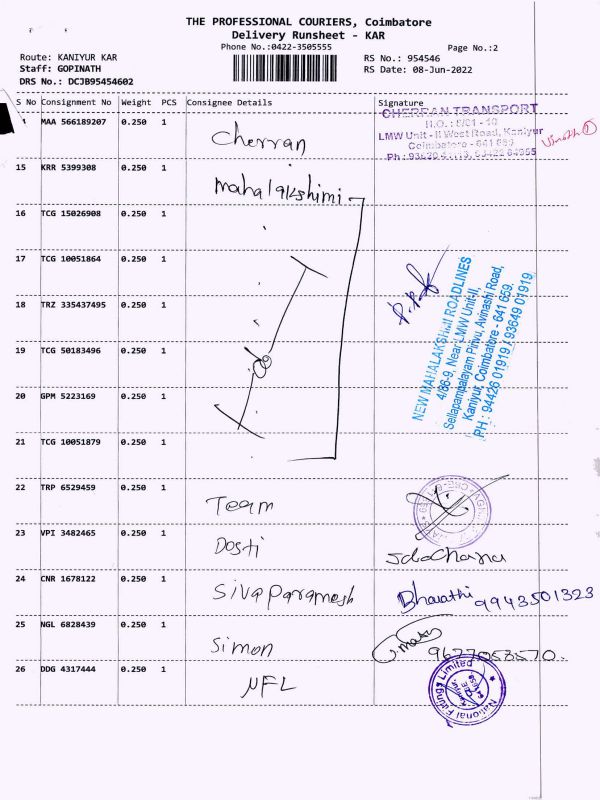 THE PROFESSIONAL COURIERS, Coimbatore
Delivery Runsheet - KAR
Phone No.:0422-3505555
Page No.:2
Route: KANIYUR KAR
RS No.: 954546
Staff: GOPINATH
RS Date: 08-Jun-2022
DRS No.: DCJB95454602
S No Consignment No Weight PCS Consignee Details Signature
MAA 566189207 0.250 1 Cherran
CHERRAN TRANSPORT
LMW Unit - II West Road, Kaniyur
Coimbatore - 641 659
15 KRR 5399308 0.250 1 mahalakshimi
16 TCG 15026908 0.250 1
17 TCG 10051864 0.250 1
18 TRZ 335437495 0.250 1
19 TCG 50183496 0.250 1
20 GPM 5223169 0.250 1
21 TCG 10051879 0.250 1
NEW MAHALAKSHMI ROADLINES
4/86-9, Near LMW Unit-II,
Sellapampalayam Pirivu, Avinashi Road,
Kaniyur, Coimbatore - 641 659.
PH : 94426 01919 / 93649 01919
22 TRP 6529459 0.250 1 Team
23 VPI 3482465 0.250 1 Dosti
24 CNR 1678122 0.250 1 Siva Paramesh Bharathi 9943501323
25 NGL 6828439 0.250 1 Simon
26 DDG 4317444 0.250 1 NFL
National Fittings Limited